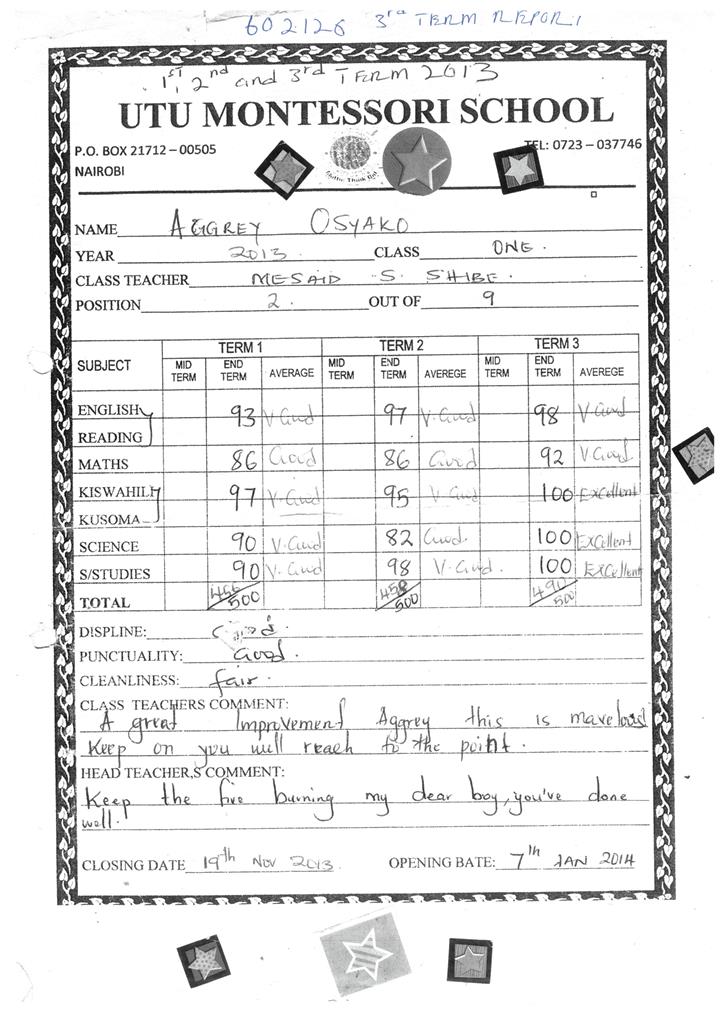 602126 3rd TERM REPORT
1st, 2nd and 3rd TERM 2013
UTU MONTESSORI SCHOOL
P.O. BOX 21712 – 00505 TEL: 0723 – 037746
NAIROBI
NAME AGGREY OSYAKO
YEAR 2013. CLASS ONE.
CLASS TEACHER MESAID S. SHIBE.
POSITION 2. OUT OF 9
SUBJECT TERM 1 TERM 2 TERM 3
MID TERM END TERM AVERAGE MID TERM END TERM AVEREGE MID TERM END TERM AVEREGE
ENGLISH 93 V.Good 97 V.Good 98 V.Good
READING
MATHS 86 Good 86 Good 92 V.Good
KISWAHILI 97 V.Good 95 V Good 100 Excellent
KUSOMA
SCIENCE 90 V.Good 82 Good. 100 Excellent
S/STUDIES 90 V.Good 98 V.Good. 100 Excellent
TOTAL 456/500 458/500 490/500
DISPLINE: Good.
PUNCTUALITY: Good.
CLEANLINESS: fair.
CLASS TEACHERS COMMENT:
A great Improvement Aggrey this is
Keep on you will reach to the point.
HEAD TEACHER,S COMMENT:
Keep the fire burning my dear boy, you've done
well.
CLOSING DATE 19th Nov 2013. OPENING BATE: 7th JAN 2014